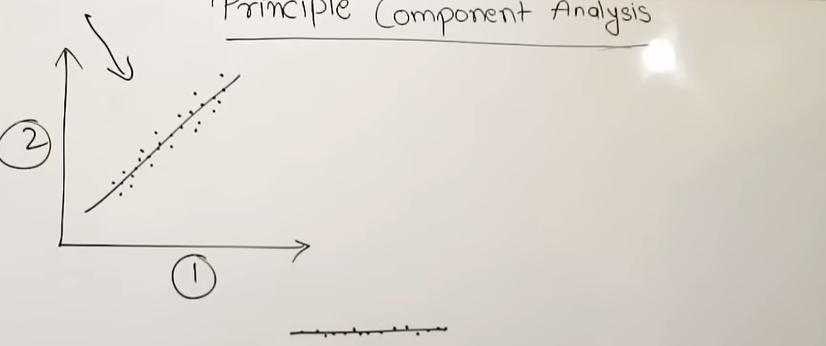 Principle Component Analysis
2
1